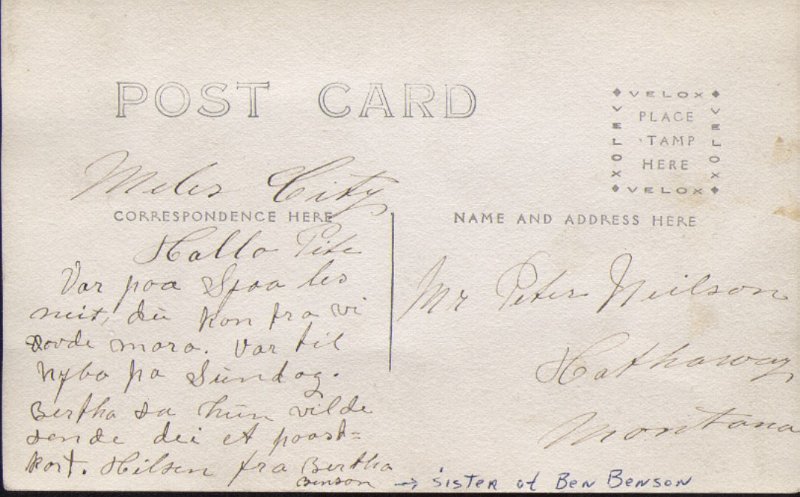 POST CARD
VELOX
VELOX
PLACE
STAMP
HERE
VELOX
VELOX
Meles City
CORRESPONDENCE HERE
NAME AND ADDRESS HERE
Hallo Pite
Var paa Spaa les
neit, du kon fra vi
sovde mora. Var til
Nybo pa Sundag.
Bertha sa hun vilde
sende dei et poast=
kort. Hilsen fra Bertha
Benson → SISTER of BEN BENSON
Mr Peter Neilson
Hathaway
Montana